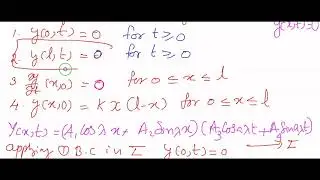 1. y(0,t) = 0 for t ≥ 0
2. y(l,t) = 0 for t ≥ 0
3 ∂y/∂t (x,0) = 0 for 0 ≤ x ≤ l
4. y(x,0) = K x (l-x) for 0 ≤ x ≤ l
y(x,t) = (A₁ cos λx + A₂ sin λx) (A₃ cos aλt + A₄ sin aλt)
applying ① B.C in I y(0,t) = 0 → I